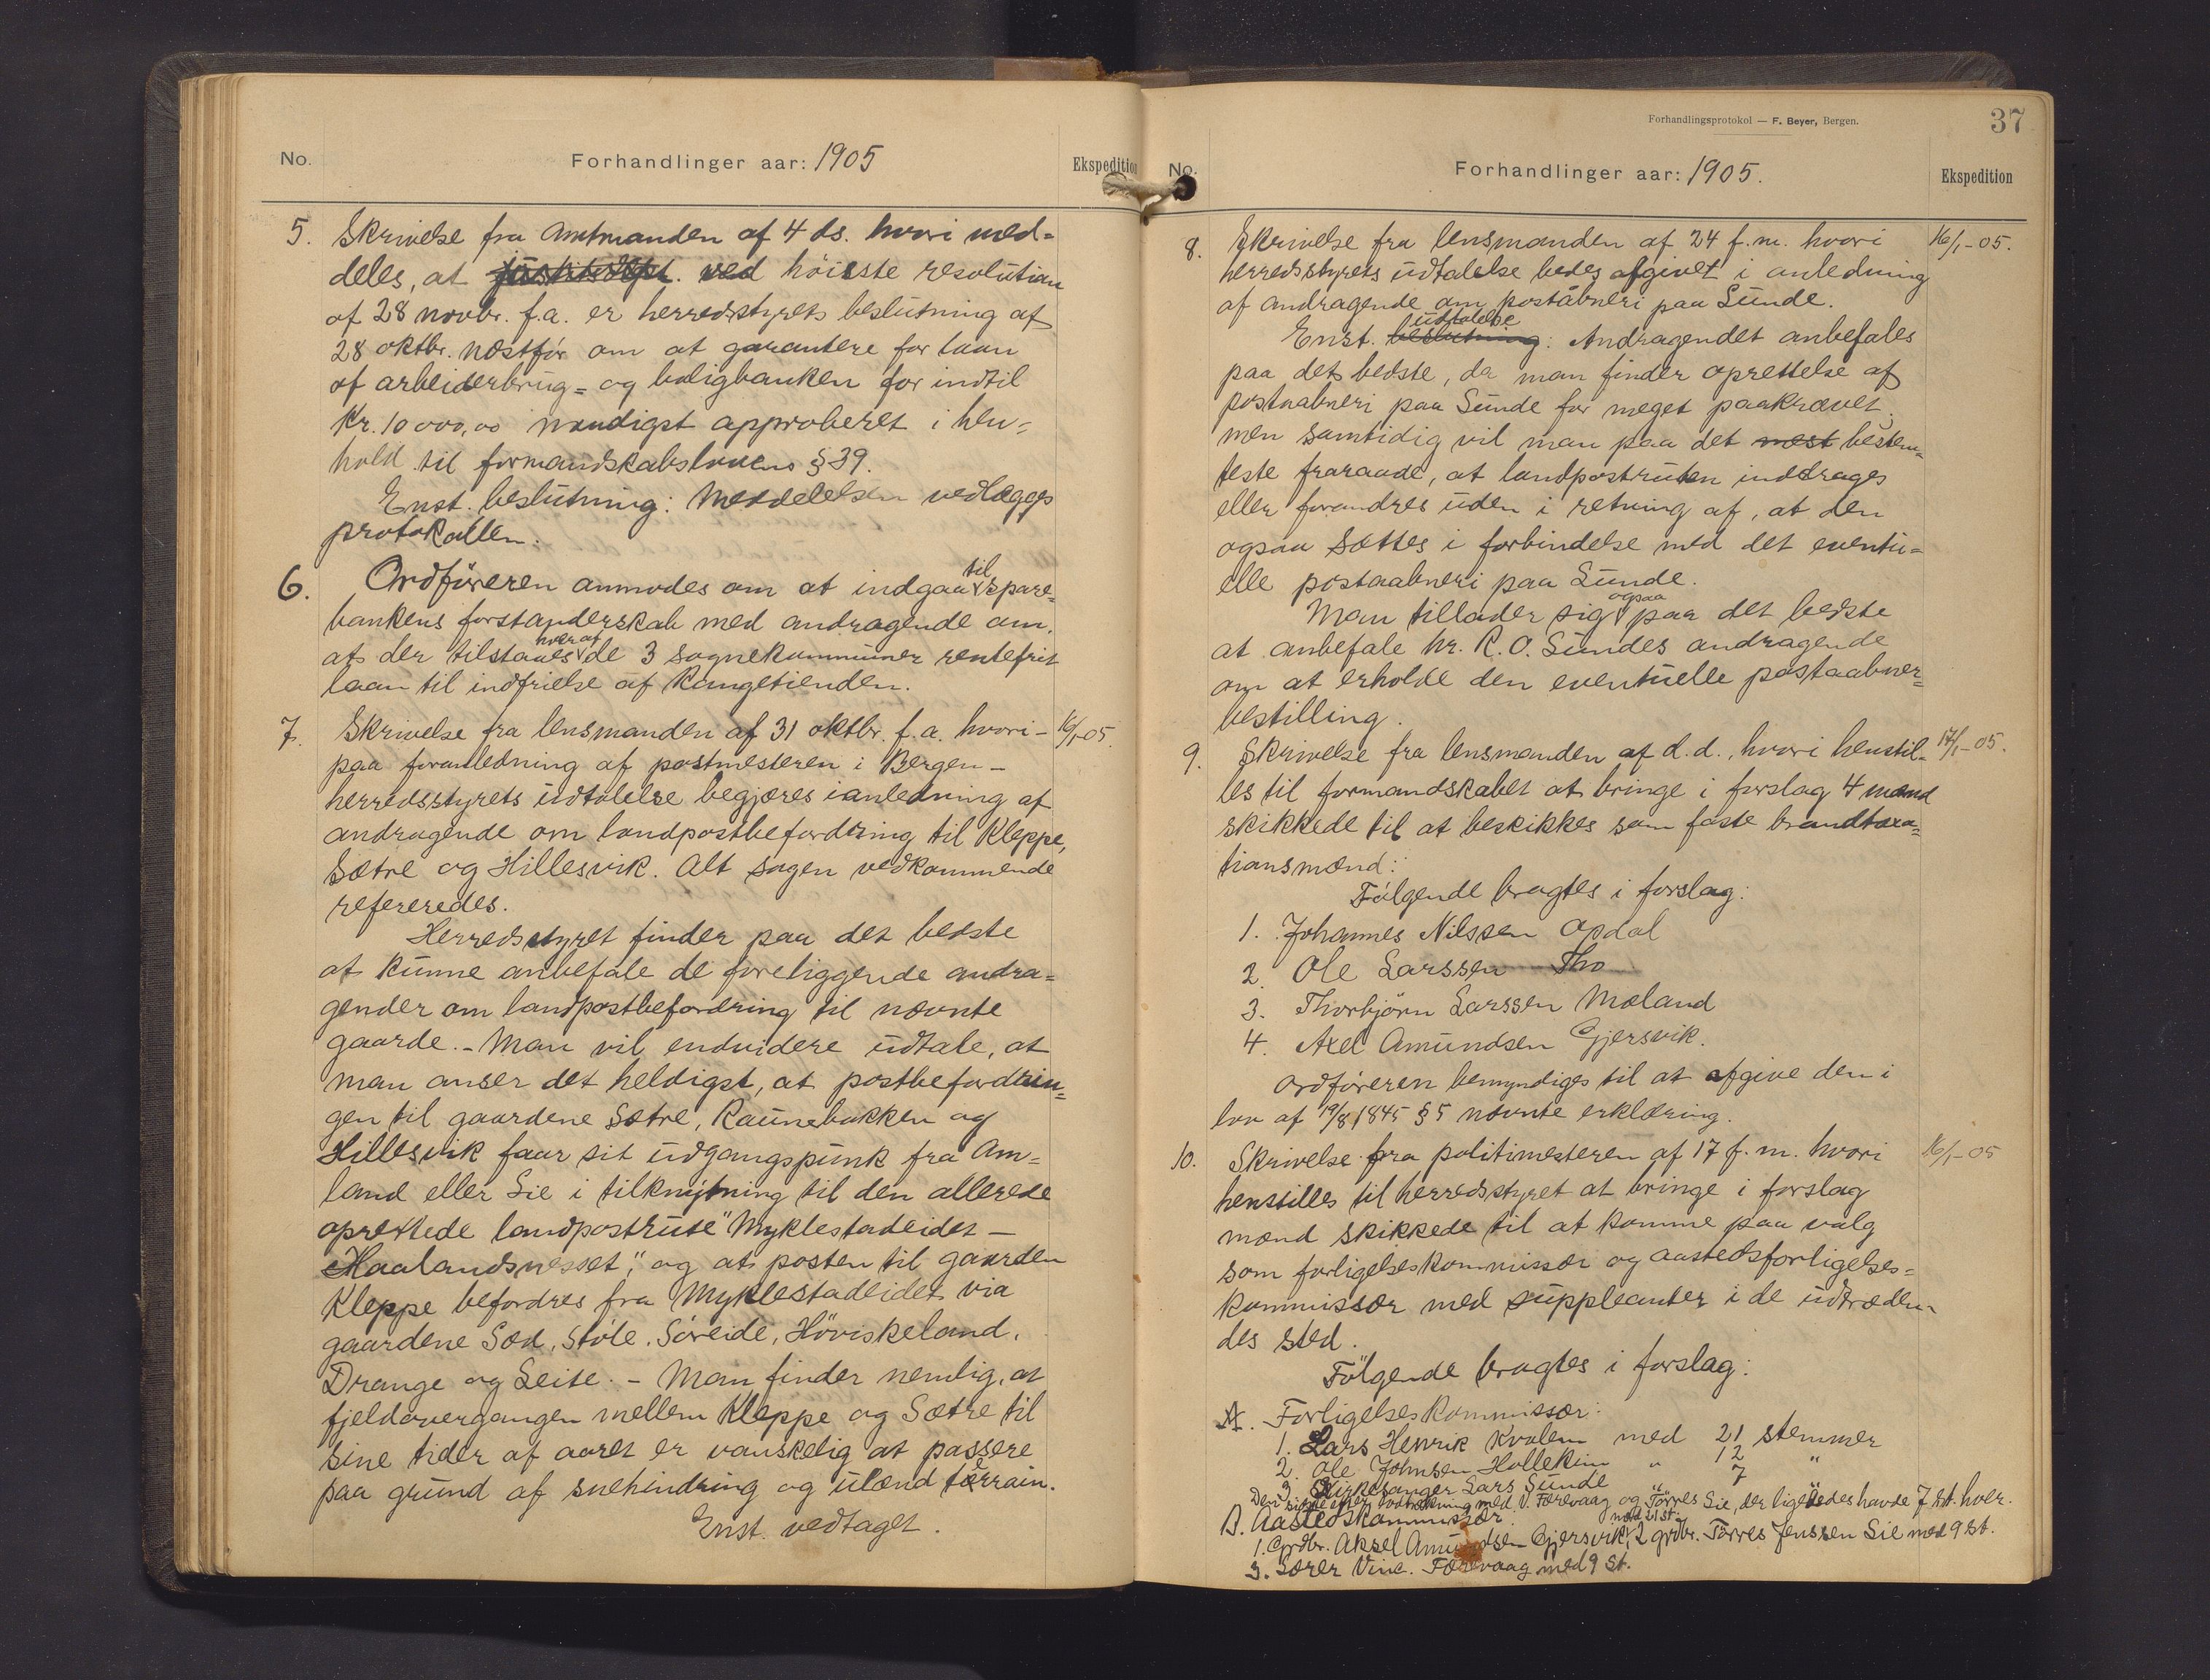 No. Forhandlinger aar: 1905 Ekspedition
5. Skrivelse fra Amtmanden af 4 ds. hvori med-
deles, at justitsdept. ved höieste resolution
af 28 novbr. f.a. er herredsstyrets beslutning af
28 oktbr. næstför om at garantere for laan
af arbeiderbrug- og boligbanken for indtil
Kr. 10 000,00 naadigst approberet i hen-
hold til formandskabslovens § 39.
Enst. beslutning: Meddelelsen vedlægges
protokollen.
6. Ordföreren anmodes om at indgaa til spare-
bankens forstanderskab med andragende om,
at der tilstaaes hver af de 3 sognekommuner rentefrit
laan til indfrielse af Kongetienden.
7. Skrivelse fra lensmanden af 31 oktbr. f.a. hvori – 16/1-05.
paa foranledning af postmesteren i Bergen –
herredsstyrets udtalelse begjæres ianledning af
andragende om landpostbefordring til Kleppe,
Sætre og Hillesvik. Alt sagen vedkommende
refereredes.
Herredsstyret finder paa det bedste
at kunne anbefale de foreliggende andra-
gender om landpostbefordring til nævnte
gaarde. – Man vil endvidere udtale, at
man anser det heldigst, at postbefordrin-
gen til gaardene Sætre, Raunebakken og
Hillesvik faar sit udgangspunk fra Am-
land eller Sie i tilknytning til den allerede
oprettede landpostrute "Myklestadeidet –
Haalandsnesset", og at posten til gaarden
Kleppe befordres fra Myklestadeidet via
gaardene Sæd, Støle, Söreide, Höviskeland,
Drange og Leite. – Man finder nemlig, at
fjeldovergangen mellem Kleppe og Sætre til
sine tider af aaret er vanskelig at passere
paa grund af snehindring og ulænd terrain.
Enst. vedtaget.
Forhandlingsprotokol — F. Beyer, Bergen. 37
No. Forhandlinger aar: 1905. Ekspedition
8. Skrivelse fra lensmanden af 24 f.m. hvori 16/1-05.
herredsstyrets udtalelse bedes afgivet i anledning
af andragende om postaabneri paa Sunde.
udtalelse
Enst. beslutning: Andragendet anbefales
paa det bedste, da man finder oprettelse af
postaabneri paa Sunde for meget paakrævet,
men samtidig vil man paa det mest bestem-
teste fraraade, at landpostruten inddrages
eller forandres uden i retning af, at den
ogsaa sættes i forbindelse med det eventu-
elle postaabneri paa Sunde.
Man tillader sig ogsaa paa det bedste
at anbefale hr. R. O. Sundes andragende
om at erholde den eventuelle postaabner-
bestilling.
9. Skrivelse fra lensmanden af d.d., hvori henstil- 17/1-05.
les til formandskabet at bringe i forslag 4 mænd
skikkede til at beskikkes som faste brandtaxa-
tionsmænd:
Fölgende bragtes i forslag:
1. Johannes Nilssen Opdal
2. Ole Larssen Tho
3. Thorbjörn Larssen Mæland
4. Axel Amundsen Gjersvik.
Ordföreren bemyndiges til at afgive den i
lov af 19/8 1845 § 5 nævnte erklæring.
10. Skrivelse fra politimesteren af 17 f.m. hvori 16/1-05
henstilles til herredsstyret at bringe i forslag
mænd skikkede til at komme paa valg
som forligelseskommissær og aastedsforligelses-
kommissær med suppleanter i de udtræden-
des sted.
Fölgende bragtes i forslag:
A. Forligelseskommissær:
1. Lars Henrik Kvalem med 21 stemmer
2. Ole Johnsen Hollekim " 12 "
3. Kirkesanger Lars Sunde " 7
Den sidste efter lodtrækning med V. Færevaag og Törres Sie, der ligeledes havde 7 st. hver.
B. Aastedskommissær:
1. Grdbr. Aksel Amundsen Gjersvik med 21 st. 2 grdbr. Törres Jenssen Sie med 9 st.
3. Lærer Vinc. Færevaag med 9 st.